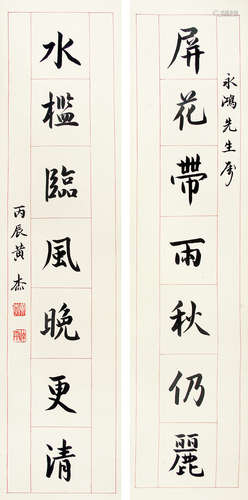 永鴻先生屬
屏花帶雨秋仍麗
水檻臨風晚更清
丙辰黃杰